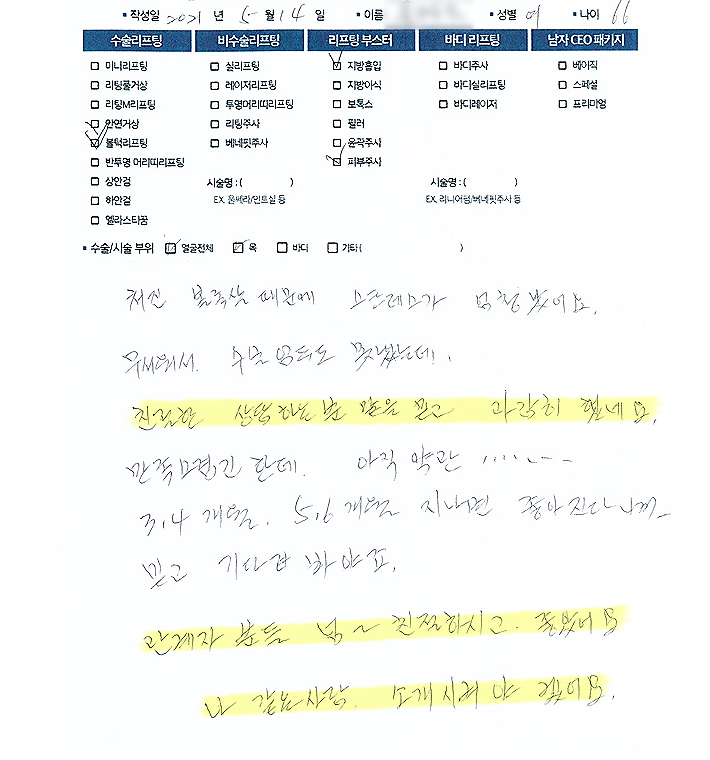 • 작성일 2021 년 5 월 14 일 • 이름 • 성별 여 • 나이 66
수술리프팅 비수술리프팅 리프팅 부스터 바디 리프팅 남자 CEO 패키지
미니리프팅 실리프팅 지방흡입 바디주사 베이직
리팅풀거상 레이저리프팅 지방이식 바디실리프팅 스페셜
리팅M리프팅 투명머리띠리프팅 보톡스 바디레이저 프리미엄
안면거상 리팅주사 필러
불턱리프팅 베네핏주사 윤곽주사
반투명 머리띠리프팅 피부주사
상안검 시술명 : ( ) 시술명 : ( )
하안검 EX. 울쎄라/민트실 등 EX. 리니어펌/베네핏주사 등
엘라스티꿈
• 수술/시술 부위 얼굴전체 목 바디 기타 ( )
처진 볼턱살 때문에 스트레스가 엄청 났어요.
무서워서. 수술 엄두도 못냈는데!.
친절한 상담하는 분 말을 믿고 과감히 했네요.
만족스럽긴 한데. 아직 약간 ........
3,4 개월. 5,6 개월 지나면 좋아진다니까
믿고 기다려 봐야죠.
관계자 분들 넘~ 친절하시고. 좋았어요
나 같은사람. 소개시켜야 겠어요.